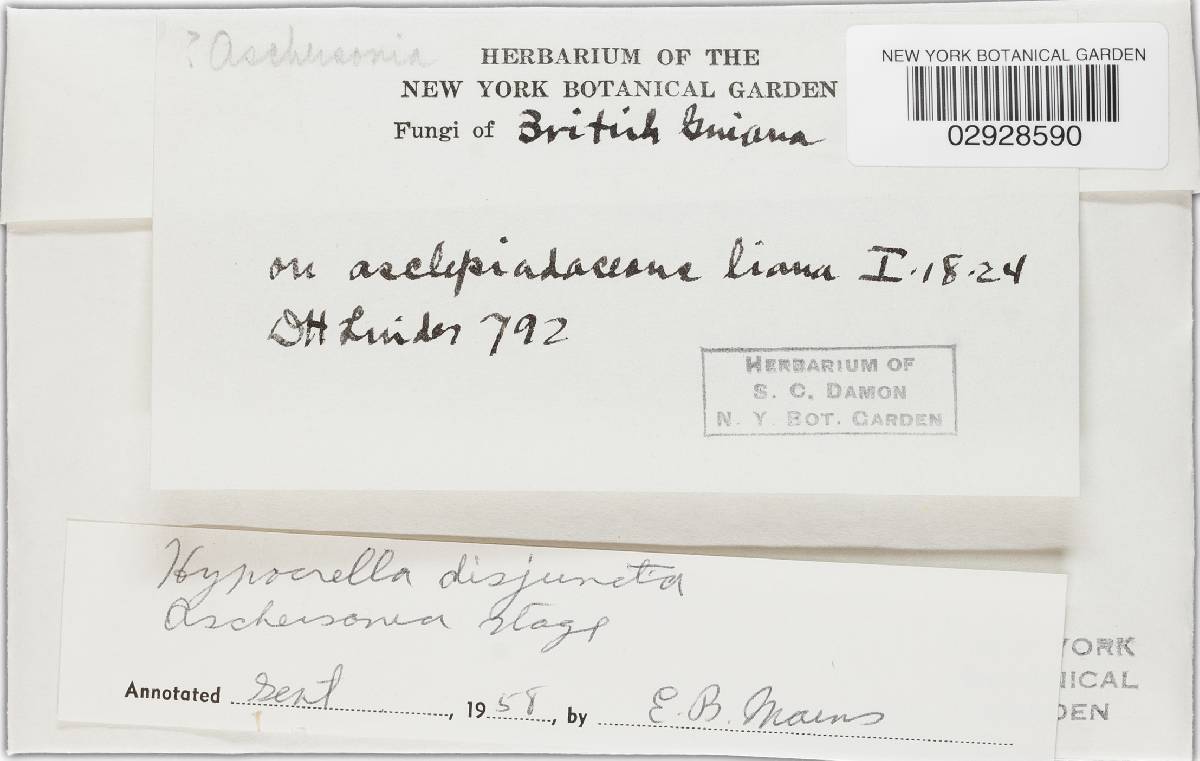 ? Aschersonia
HERBARIUM OF THE
NEW YORK BOTANICAL GARDEN
Fungi of British Guiana
NEW YORK BOTANICAL GARDEN
02928590
on asclepiadaceous liana I.18.24
DH Linder 792
HERBARIUM OF
S. C. DAMON
N. Y. BOT. GARDEN
Hypocrella disjuncta
Aschersonia stage
Annotated Sept, 1958, by E. B. Mains
YORK
NICAL
DEN